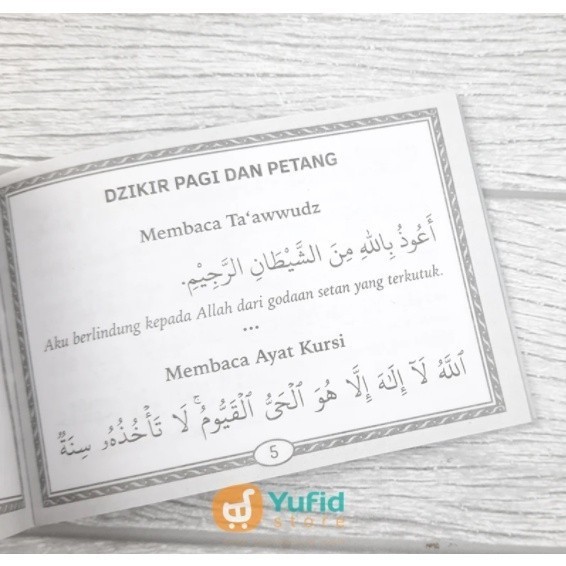 DZIKIR PAGI DAN PETANG
Membaca Ta‘awwudz
أَعُوذُ بِاللهِ مِنَ الشَّيْطَانِ الرَّجِيْمِ.
Aku berlindung kepada Allah dari godaan setan yang terkutuk.
...
Membaca Ayat Kursi
ٱللَّهُ لَآ إِلَٰهَ إِلَّا هُوَ ٱلْحَىُّ ٱلْقَيُّومُ ۚ لَا تَأْخُذُهُۥ سِنَةٌ
5
Yufid
store